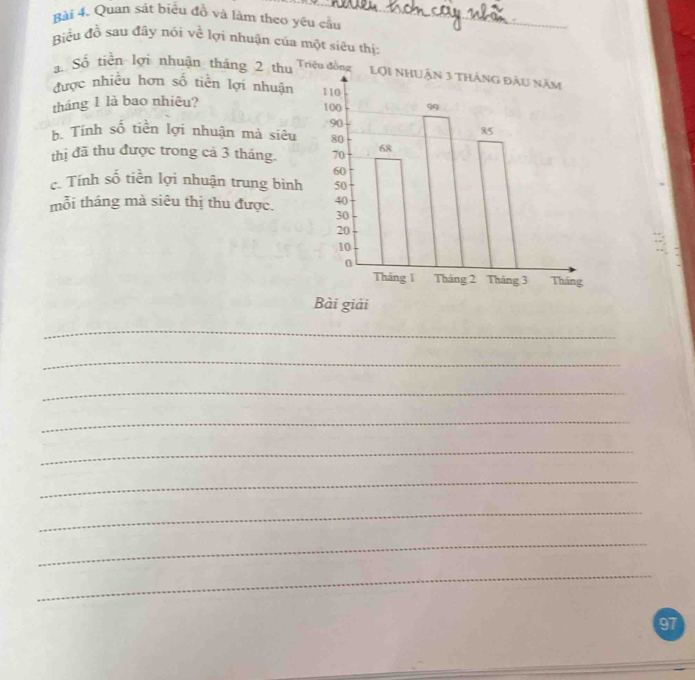 hơn cây nhãn.
Bài 4. Quan sát biểu đồ và làm theo yêu cầu
Biểu đồ sau đây nói về lợi nhuận của một siêu thị:
a. Số tiền lợi nhuận tháng 2 thu
được nhiều hơn số tiền lợi nhuận
tháng 1 là bao nhiêu?
b. Tính số tiền lợi nhuận mà siêu
thị đã thu được trong cả 3 tháng.
c. Tính số tiền lợi nhuận trung bình
mỗi tháng mà siêu thị thu được.
Triệu đồng
LỢI NHUẬN 3 THÁNG ĐẦU NĂM
110
100
90
80
70
60
50
40
30
20
10
0
68
99
85
Tháng 1 Tháng 2 Tháng 3 Tháng
Bài giải
97